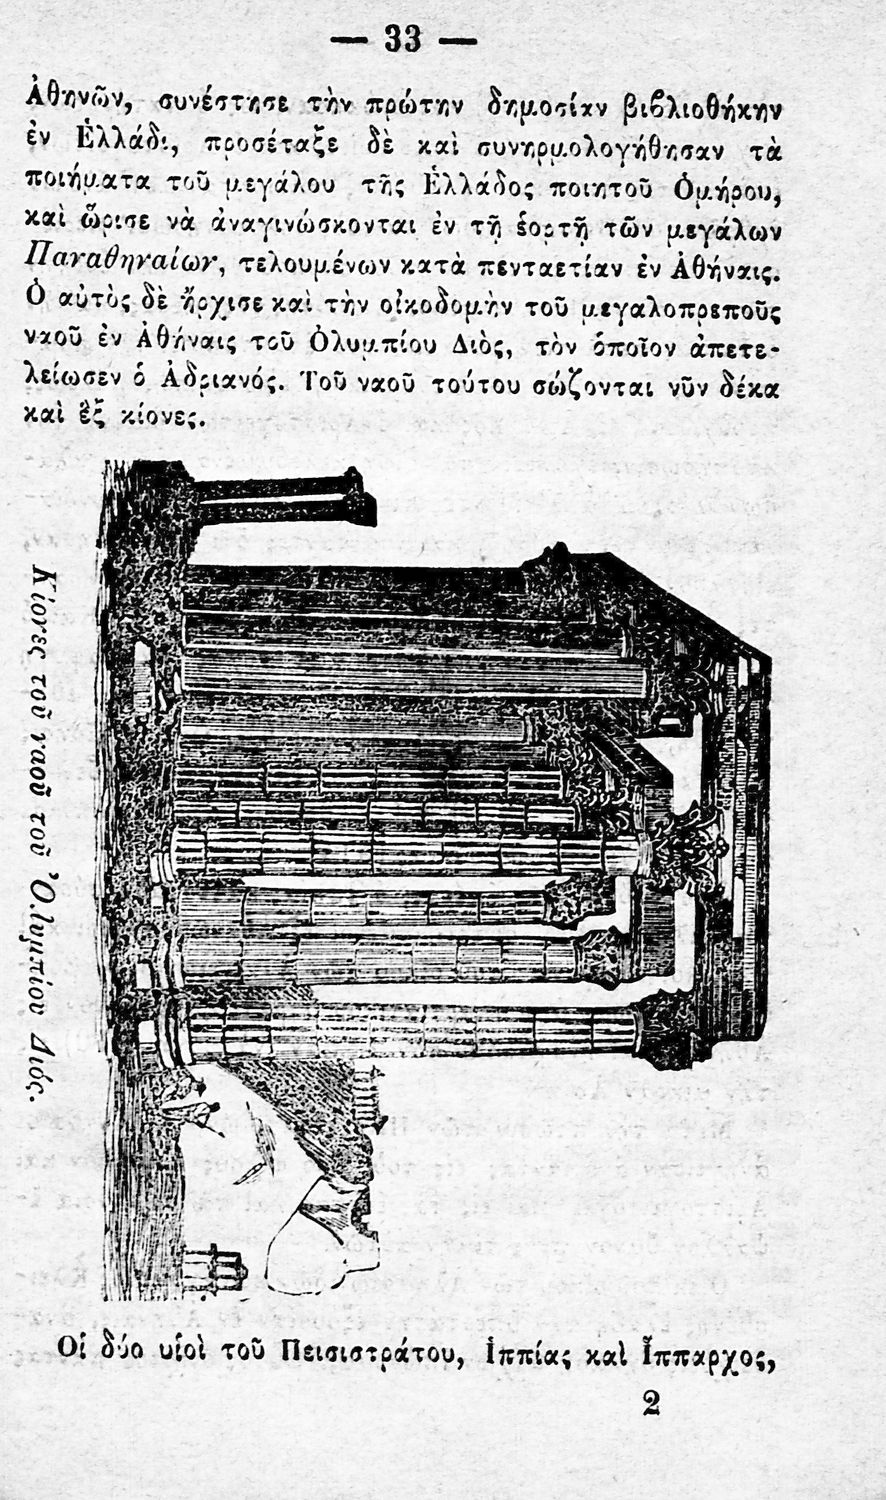 — 33 —
Ἀθηνῶν, συνέστησε τὴν πρώτην δημοσίαν βιβλιοθήκην
ἐν Ἑλλάδι, προσέταξε δὲ καὶ συνηρμολογήθησαν τὰ
ποιήματα τοῦ μεγάλου τῆς Ἑλλάδος ποιητοῦ Ὁμήρου,
καὶ ὥρισε νὰ ἀναγινώσκονται ἐν τῇ ἑορτῇ τῶν μεγάλων
Παναθηναίων, τελουμένων κατὰ πενταετίαν ἐν Ἀθήναις.
Ὁ αὐτὸς δὲ ἤρχισε καὶ τὴν οἰκοδομὴν τοῦ μεγαλοπρεποῦς
ναοῦ ἐν Ἀθήναις τοῦ Ὀλυμπίου Διὸς, τὸν ὁποῖον ἀπετε-
λείωσεν ὁ Ἀδριανός. Τοῦ ναοῦ τούτου σώζονται νῦν δέκα
καὶ ἓξ κίονες.
Κίονες τοῦ ναοῦ τοῦ Ὀλυμπίου Διός.
Οἱ δύο υἱοὶ τοῦ Πεισιστράτου, Ἱππίας καὶ Ἵππαρχος,
2